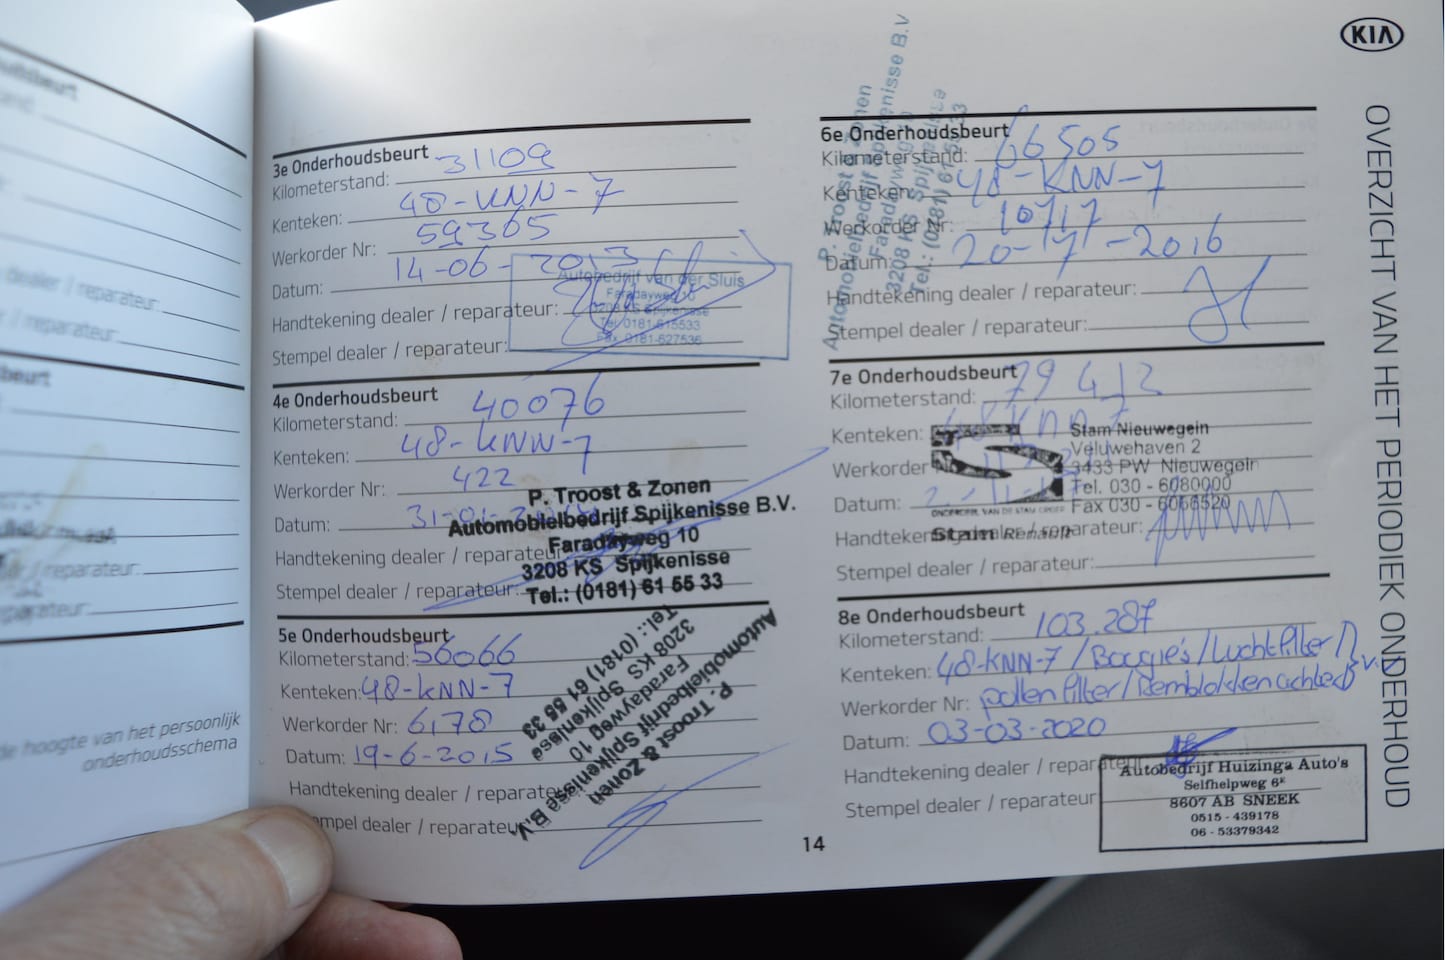 KIA
OVERZICHT VAN HET PERIODIEK ONDERHOUD
3e Onderhoudsbeurt
Kilometerstand: 31109
Kenteken: 48-KNN-7
Werkorder Nr: 59365
Datum: 14-06-2013
Handtekening dealer / reparateur:
Stempel dealer / reparateur:
Autobedrijf van der Sluis
Faradayweg 10
3208 KS Spijkenisse
Tel. 0181-615533
Fax. 0181-627536
4e Onderhoudsbeurt
Kilometerstand: 40076
Kenteken: 48-KNN-7
Werkorder Nr: 422
Datum: 31-01-
Handtekening dealer / reparateur:
Stempel dealer / reparateur:
P. Troost & Zonen
Automobielbedrijf Spijkenisse B.V.
Faradayweg 10
3208 KS Spijkenisse
Tel.: (0181) 61 55 33
5e Onderhoudsbeurt
Kilometerstand: 56066
Kenteken: 48-KNN-7
Werkorder Nr: 6178
Datum: 19-6-2015
Handtekening dealer / reparateur
Stempel dealer / reparateur
P. Troost & Zonen
Automobielbedrijf Spijkenisse B.V.
Faradayweg 10
3208 KS Spijkenisse
Tel.: (0181) 61 55 33
6e Onderhoudsbeurt
Kilometerstand: 66505
Kenteken: 48-KNN-7
Werkorder Nr: 10717
Datum: 20-7-2016
Handtekening dealer / reparateur:
Stempel dealer / reparateur:
P. Troost & Zonen
Automobielbedrijf Spijkenisse B.V
Faradayweg
3208 KS Spijkenisse
Tel.: (0181) 61 55 33
7e Onderhoudsbeurt
Kilometerstand: 79412
Kenteken: 48 KNN 7
Werkorder
Datum:
Handtekening dealer / reparateur:
Stempel dealer / reparateur:
Stam Nieuwegein
Veluwehaven 2
3433 PW Nieuwegein
Tel. 030 - 6080000
Fax 030 - 6066520
Stam
8e Onderhoudsbeurt
Kilometerstand: 103.287
Kenteken: 48-KNN-7 / Bougie's / Luchtfilter /
Werkorder Nr: pollenfilter / Remblokken achter
Datum: 03-03-2020
Handtekening dealer / reparateur
Stempel dealer / reparateur
Autobedrijf Huizinga Auto's
Selfhelpweg 6ᴷ
8607 AB SNEEK
0515 - 439178
06 - 53379342
14
de hoogte van het persoonlijk
onderhoudsschema